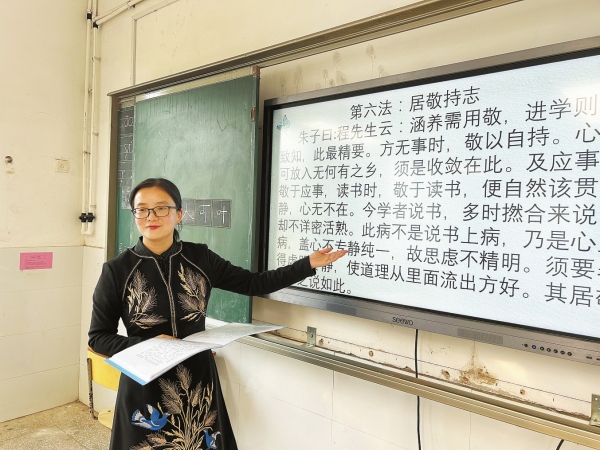 第六法：居敬持志
朱子曰:程先生云：涵养需用敬，进学则
致知，此最精要。方无事时，敬以自持。心
可放入无何有之乡，须是收敛在此。及应事
敬于应事，读书时，敬于读书，便自然该贯
静，心无不在。今学者说书，多时撚合来说
却不详密活熟。此病不是说书上病，乃是心
病，盖心不专静纯一，故思虑不精明。须要
得虚 静，使道理从里面流出方好。其居
之说如此。
人可叶
seewo